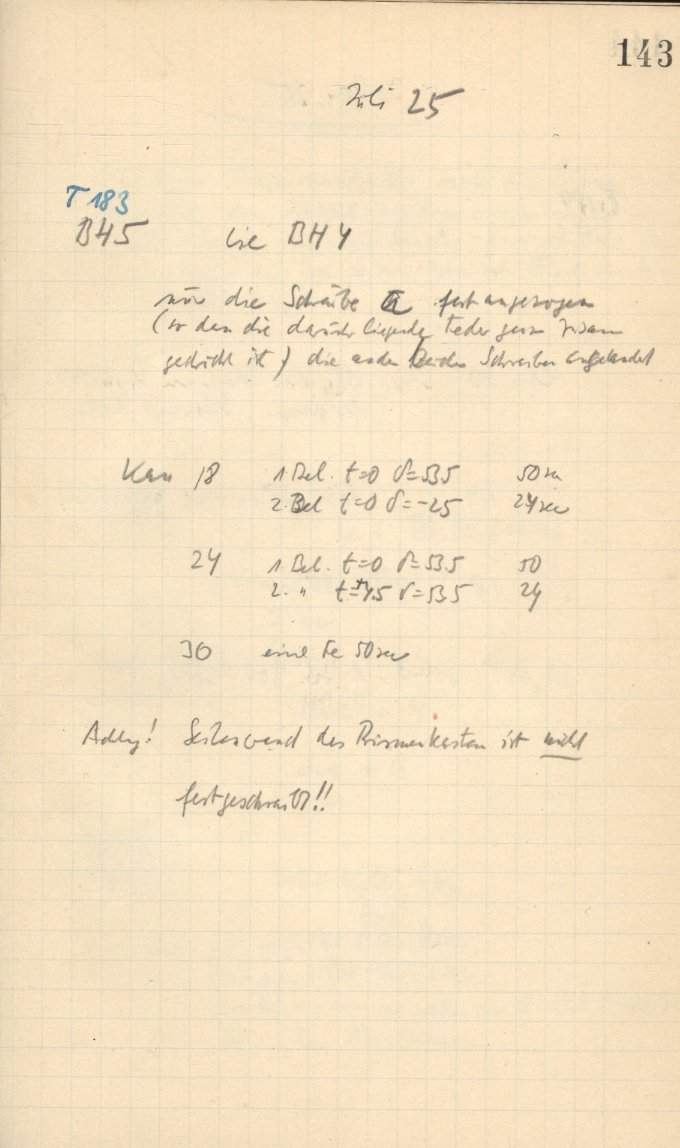 143
Juli 25
T 183
B45 wie BH4
nur die Schraube a fest angezogen
(so dass die darunter liegende Feder ganz zusam
gedrückt ist) die anderen beiden Schrauben
Kass 18 1. Bel. t=0 δ=53.5 50 sec
2. Bel t=0 δ=-25 24 sec
24 1. Bel. t=0 δ=53.5 50
2. " t=+45 δ=53.5 24
30 eine Fe 50 sec
Achtg! Seitenwand des Prismenkasten ist nicht
festgeschraubt!!